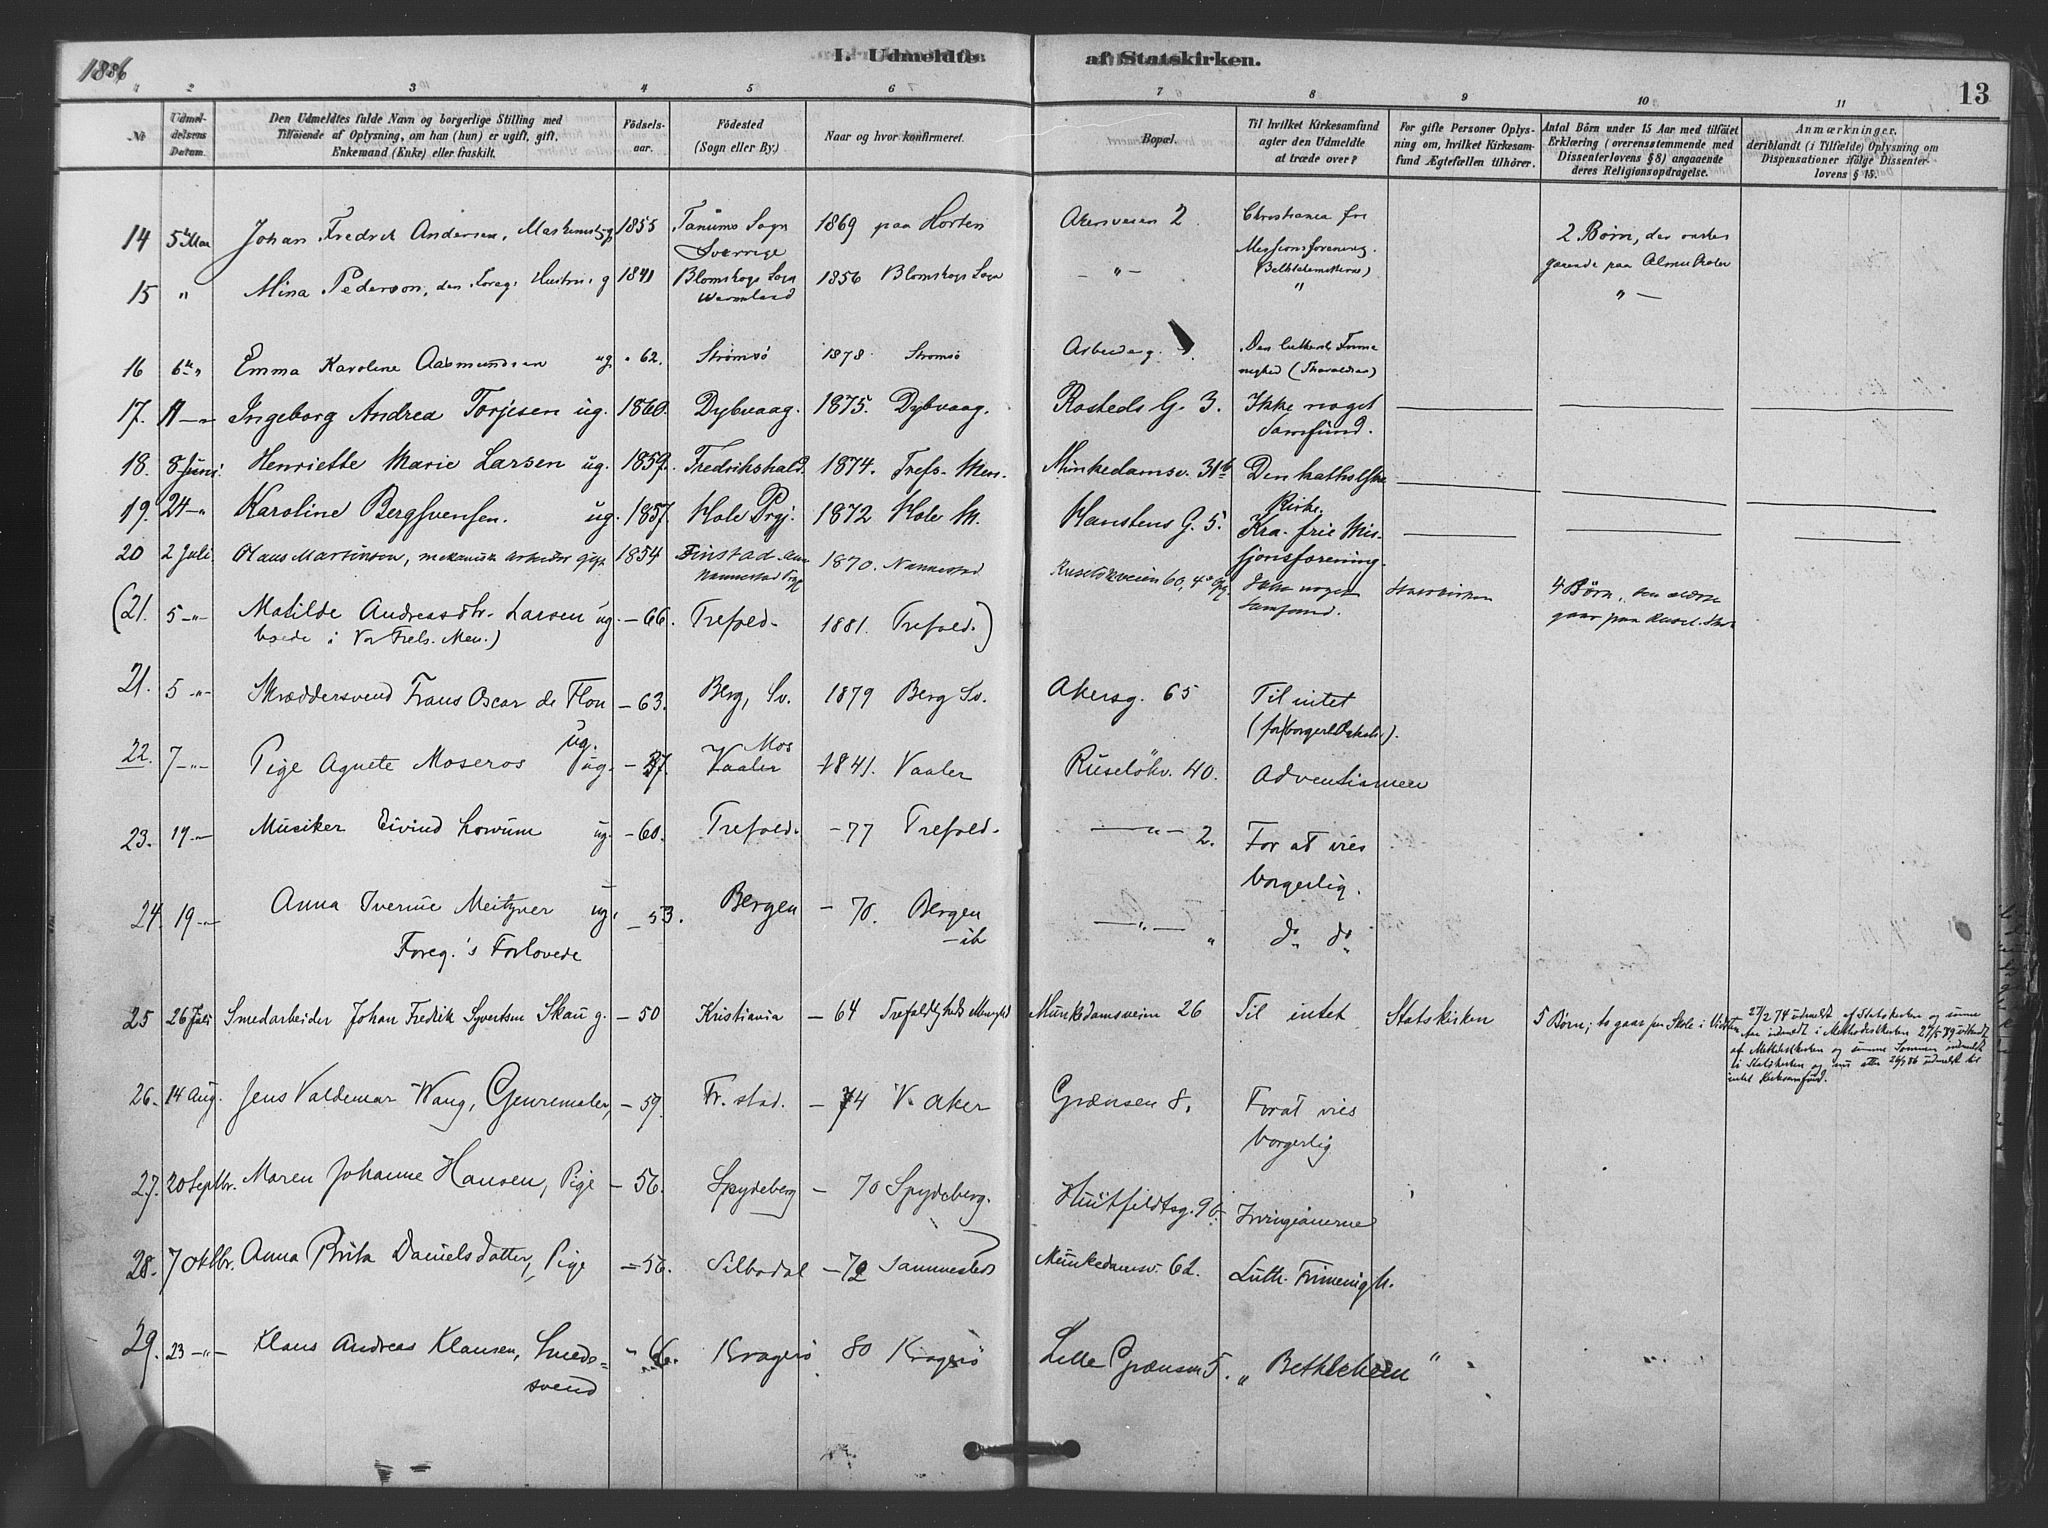 1886
I. Udmeldte af Statskirken.
13
1 2 3 4 5 6 7 8 9 10 11
№
Udmeldelsens Datum.
Den Udmeldtes fulde Navn og borgerlige Stilling med
Tilføiende af Oplysning, om han (hun) er ugift, gift,
Enkemand (Enke) eller fraskilt.
Fødselsaar.
Fødested
(Sogn eller By.)
Naar og hvor konfirmeret.
Bopæl.
Til hvilket Kirkesamfund
agter den Udmeldte
at træde over?
For gifte Personer Oplysning
om, hvilket Kirkesamfund
Ægtefællen tilhører.
Antal Børn under 15 Aar med tilføiet
Erklæring (overensstemmende med
Dissenterlovens § 8) angaaende
deres Religionsopdragelse.
Anmærkninger,
deriblandt (i Tilfælde) Oplysning om
Dispensationer ifølge Dissenterlovens
§ 15.
14 5te Mai Johan Fredrik Andersen, 1855 Tanums Sogn Sverrige 1869 paa Horten Akersveien 2 Christiania fri Missionsforening 2 Børn, der
gaaende paa
15 " Mina Pederson, den Foreg. Hustru, g 1841 Blomskogs Sogn Wermland 1856 Blomskogs Sogn - " - " " -
16 6te " Emma Karoline Aasmundsen ug. " 62. Strømsø 1878. Strømsø Arbeiderg. Den luthersk Frimenighed
17. 11 - " Ingeborg Andrea Torjesen ug. 1860. Dybvaag. 1875. Dybvaag. Rosteds G. 3. Ikke noget Samfund.
18. 8 Juni. Henriette Marie Larsen ug. 1859. Fredrikshald. 1874. Trefs. Men. Munkedamsv. 31b Den katholske Kirke.
19. 24 - " Karoline Bergsvensen. ug. 1857. Hole Prgj. 1872 Hole M. Hanstens G. 5. Kra. frie Missjonsforening.
20 2 Juli. Olaus Martinson, mekanisk arbeider gift 1854 Finstad Nannestad Prgj 1870. Nannestad Ruselökveien 60, Ikke noget Samfund. Statskirken 4 Børn,
gaar paa
(21. 5 - " Matilde Andreasdtr. Larsen ug. - 66. Trefold. 1881. Trefold.)
boede i Vor Frels. Men.)
21. 5 - " Skræddersvend Frans Oscar de Flon ug. - 63. Berg, Sv. 1879 Berg Sv. Akersg. 65 Til intet
22. 7 - " Pige Agnete Moseros ug. - 27. Vaaler Mos 1841. Vaaler Ruselökv. 40. Adventismen
23. 19 - " Musiker Eivind ug. - 60. Trefold. - 77 Trefold. - " - 2. For at vies
borgerlig.
24. 19 - " Anna Iverine ug. - 53. Bergen - 70. Bergen - " - " do do
Foreg.'s Forlovede - ib
25 26 Juli Smedarbeider Johan Fredrik Syvertsen Skau g. - 50 Kristiania - 64 Trefoldigheds Menighed Munkedamsveien 26 Til intet Statskirken 5 Børn; to gaar paa Skole i 27/2 74 udmeldt af Statskirken og
indmeldt i Methodistkirken
af Methodistkirken og samme Sommer indmeldt
i Statskirken og nu atter 26/7 86 udmeldt til
intet Kirkesamfund.
26. 14 Aug. Jens Valdemar Wang, Genremaler, - 59. Fr. stad. - 74 V. Aker Grænsen 8. For at vies
borgerlig
27. 20 Septbr. Maren Johanne Hansen, Pige - 56. Spydeberg - 70 Spydeberg. Huitfeldtsg. Irvingianerne
28. 7 Oktbr. Anna Brita Danielsdatter, Pige - 56. Silbodal - 72 Munkedamsv. 62. Luth. Frimenigh.
29. 23 - " - Klaus Andreas Klausen, Smedsvend - 66. Kragerö 80 Kragerö Lille Grænsen 5. "Bethlehem"